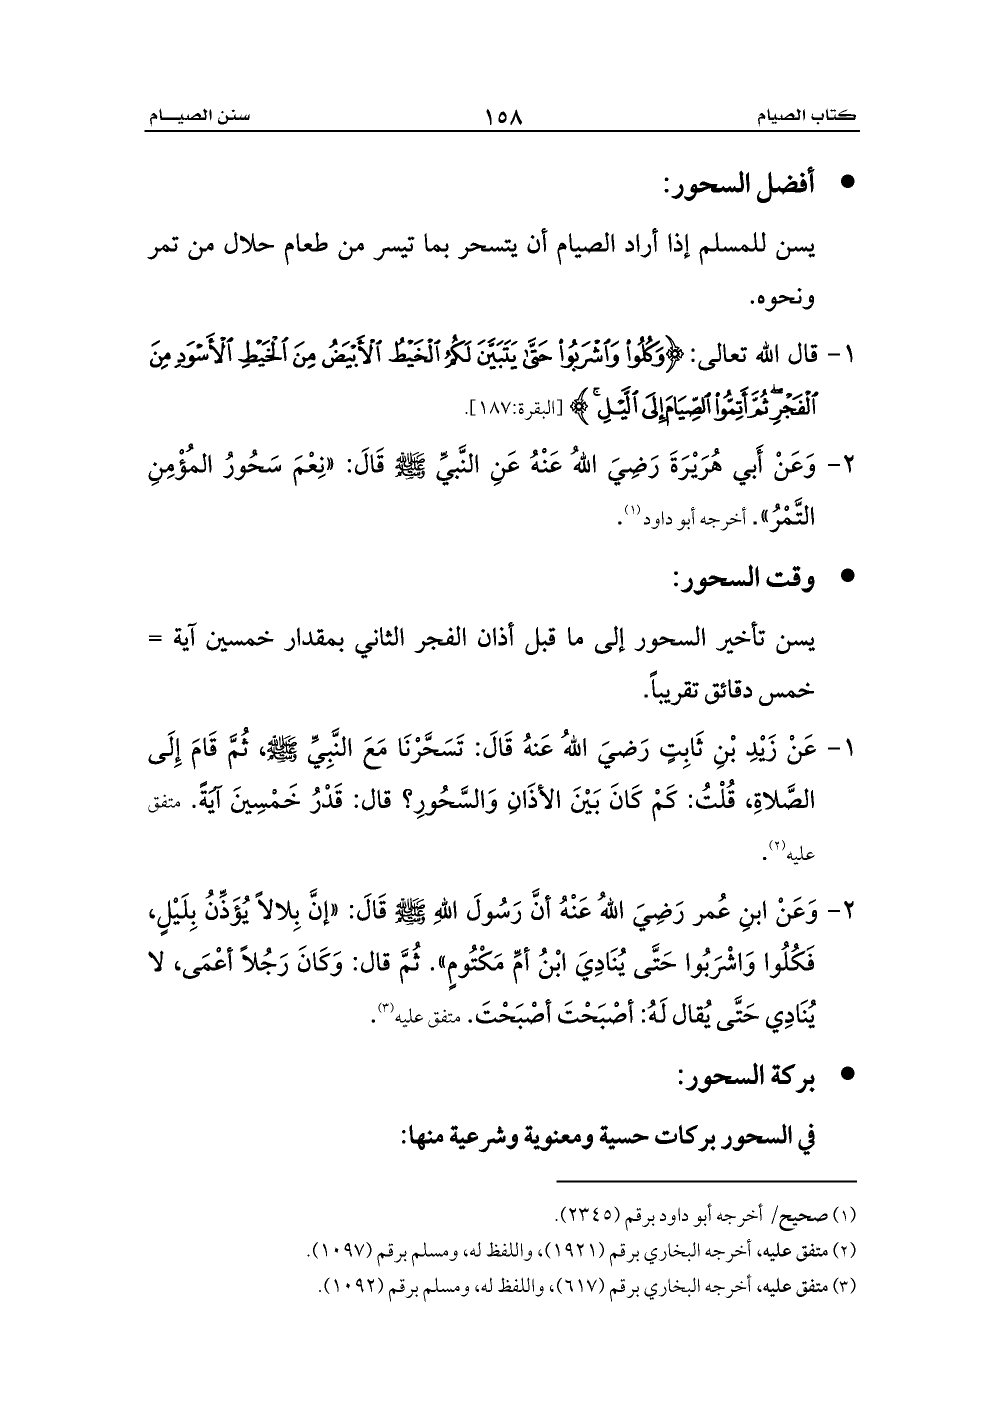 كتاب الصيام ١٥٨ سنن الصيـــام
● أفضل السحور:
يسن للمسلم إذا أراد الصيام أن يتسحر بما تيسر من طعام حلال من تمر
ونحوه.
١- قال الله تعالى: ﴿وَكُلُوا۟ وَٱشْرَبُوا۟ حَتَّىٰ يَتَبَيَّنَ لَكُمُ ٱلْخَيْطُ ٱلْأَبْيَضُ مِنَ ٱلْخَيْطِ ٱلْأَسْوَدِ مِنَ
ٱلْفَجْرِ ۖ ثُمَّ أَتِمُّوا۟ ٱلصِّيَامَ إِلَى ٱلَّيْلِ ۚ ﴾ [البقرة:١٨٧].
٢- وَعَنْ أَبي هُرَيْرَةَ رَضِيَ اللهُ عَنْهُ عَنِ النَّبيِّ ﷺ قَالَ: «نِعْمَ سَحُورُ المُؤْمِنِ
التَّمْرُ». أخرجه أبو داود(١).
● وقت السحور:
يسن تأخير السحور إلى ما قبل أذان الفجر الثاني بمقدار خمسين آية =
خمس دقائق تقريباً.
١- عَنْ زَيْدِ بْنِ ثَابِتٍ رَضيَ اللهُ عَنهُ قَالَ: تَسَحَّرْنَا مَعَ النَّبِيِّ ﷺ، ثُمَّ قَامَ إِلَى
الصَّلاةِ، قُلْتُ: كَمْ كَانَ بَيْنَ الأذَانِ وَالسَّحُورِ؟ قال: قَدْرُ خَمْسِينَ آيَةً. متفق
عليه(٢).
٢- وَعَنْ ابنِ عُمر رَضِيَ اللهُ عَنْهُ أنَّ رَسُولَ اللهِ ﷺ قَالَ: «إنَّ بِلالاً يُؤَذِّنُ بِلَيْلٍ،
فَكُلُوا وَاشْرَبُوا حَتَّى يُنَادِيَ ابْنُ أمِّ مَكْتُومٍ». ثُمَّ قال: وَكَانَ رَجُلاً أعْمَى، لا
يُنَادِي حَتَّى يُقال لَهُ: أصْبَحْتَ أصْبَحْتَ. متفق عليه(٣).
● بركة السحور:
في السحور بركات حسية ومعنوية وشرعية منها:
(١) صحيح/ أخرجه أبو داود برقم (٢٣٤٥).
(٢) متفق عليه، أخرجه البخاري برقم (١٩٢١)، واللفظ له، ومسلم برقم (١٠٩٧).
(٣) متفق عليه، أخرجه البخاري برقم (٦١٧)، واللفظ له، ومسلم برقم (١٠٩٢).